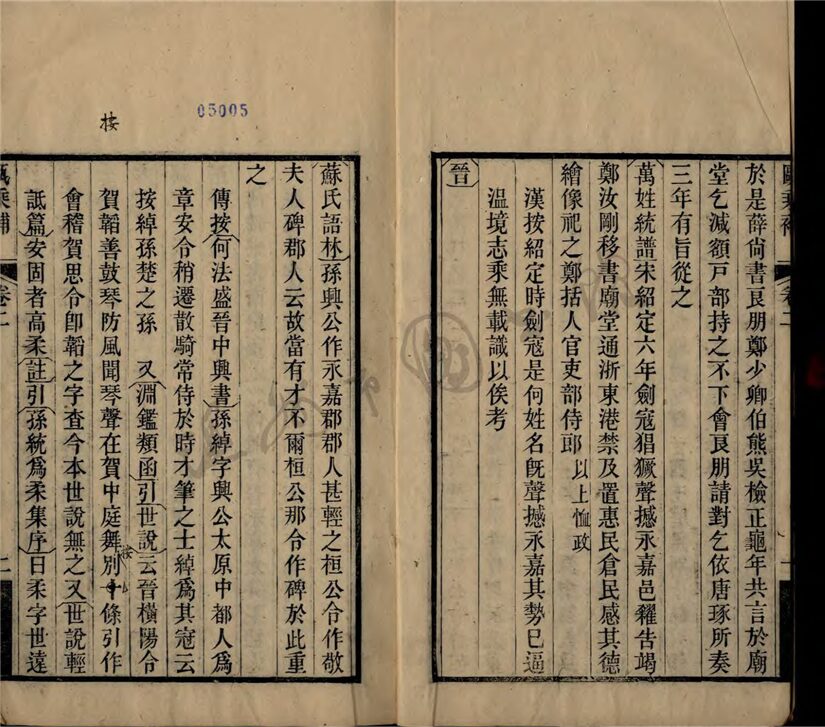 於是薛尙書良朋鄭少卿伯熊吳檢正龜年共言於廟
堂乞減額戸部持之不下會良朋請對乞依唐琢所奏
三年有旨從之
萬姓統譜宋紹定六年劍寇猖獗聲撼永嘉邑糴告竭
鄭汝剛移書廟堂通浙東港禁及置惠民倉民感其德
繪像祀之鄭括人官吏部侍郎 以上恤政
漢按紹定時劍寇是何姓名旣聲撼永嘉其勢巳逼
溫境志乘無載識以俟考
晉
甌乘補 卷二 一
05005
按
蘇氏語林孫興公作永嘉郡郡人甚輕之桓公令作敬
夫人碑郡人云故當有才不爾桓公那令作碑於此重
之
傳按何法盛晉中興書孫綽字興公太原中都人爲
章安令稍遷散騎常侍於時才筆之士綽爲其冠云
按綽孫楚之孫 又淵鑑類函引世說云晉橫陽令
賀韜善鼓琴防風聞琴聲在賀中庭舞別一條引作
按
會稽賀思令卽韜之字查今本世說無之又世說輕
詆篇安固者高柔註引孫統爲柔集序曰柔字世遠
甌乘補 卷二 二